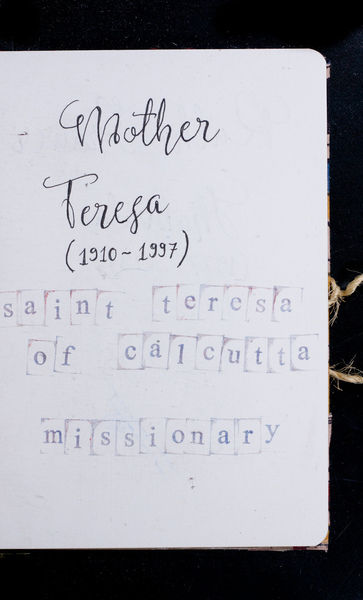 Mother
Teresa
(1910~1997)
saint teresa
of calcutta
missionary